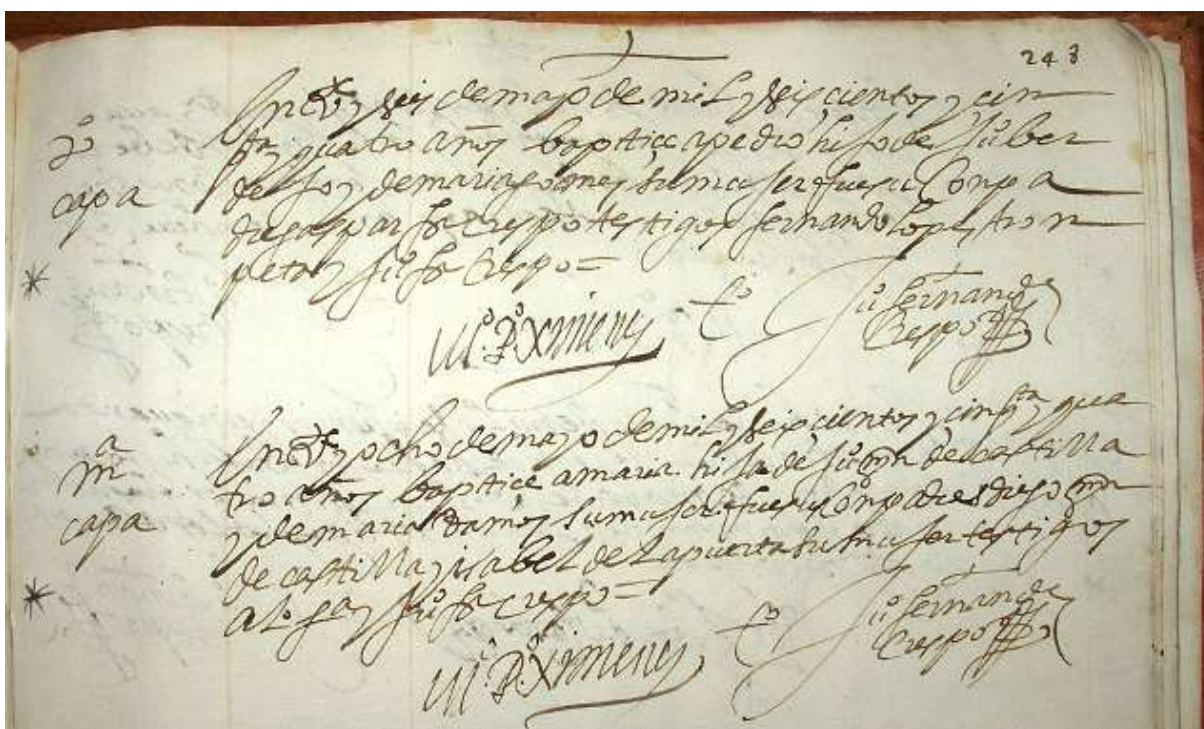 248
po
capa
En Vte y seis de mayo de mil y seiscientos y cin
ta y quatro años baptice a pedro hijo de Juo ber
de jo y de maria gomes su muger fueron Conpa
dre gaspar frs Crespo testigos fernando lopes tron
peta y Juo frs Crespo =
Mo. Po Ximenes to Juo fernandes
Crespo
ma
capa
En Vte y ocho de mayo de mil y seiscientos y cinqta y qua
tro años baptice a maria hija de Juo mn de castilla
y de maria Ramos su muger fueron Conpadres diego mn
de castilla y isabel de la puerta su muger testigos
alo ga y Juo frs crespo =
Mo. Po Ximenes to Juo fernandes
Crespo